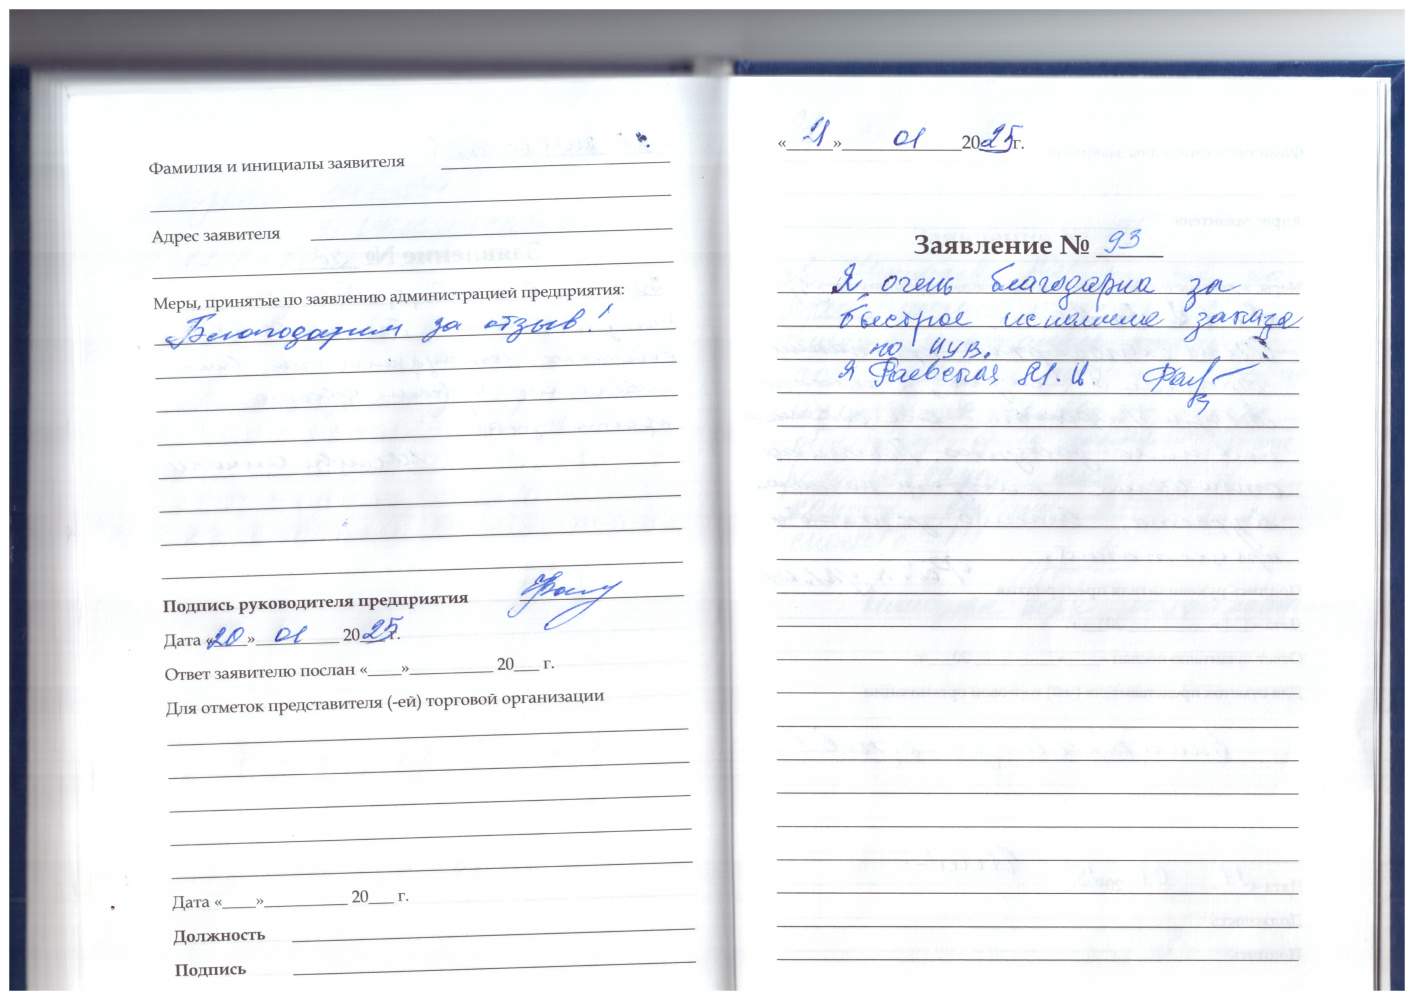 Фамилия и инициалы заявителя
Адрес заявителя
Меры, принятые по заявлению администрацией предприятия:
Благодарим за отзыв!
Подпись руководителя предприятия
Дата «20» 01 2025г.
Ответ заявителю послан «____»__________ 20___ г.
Для отметок представителя (-ей) торговой организации
Дата «____»__________ 20___ г.
Должность
Подпись
«21» 01 2025г.
Заявление № 93
Я очень благодарна за
быстрое исполнение заказа
по
Я Раевская И.